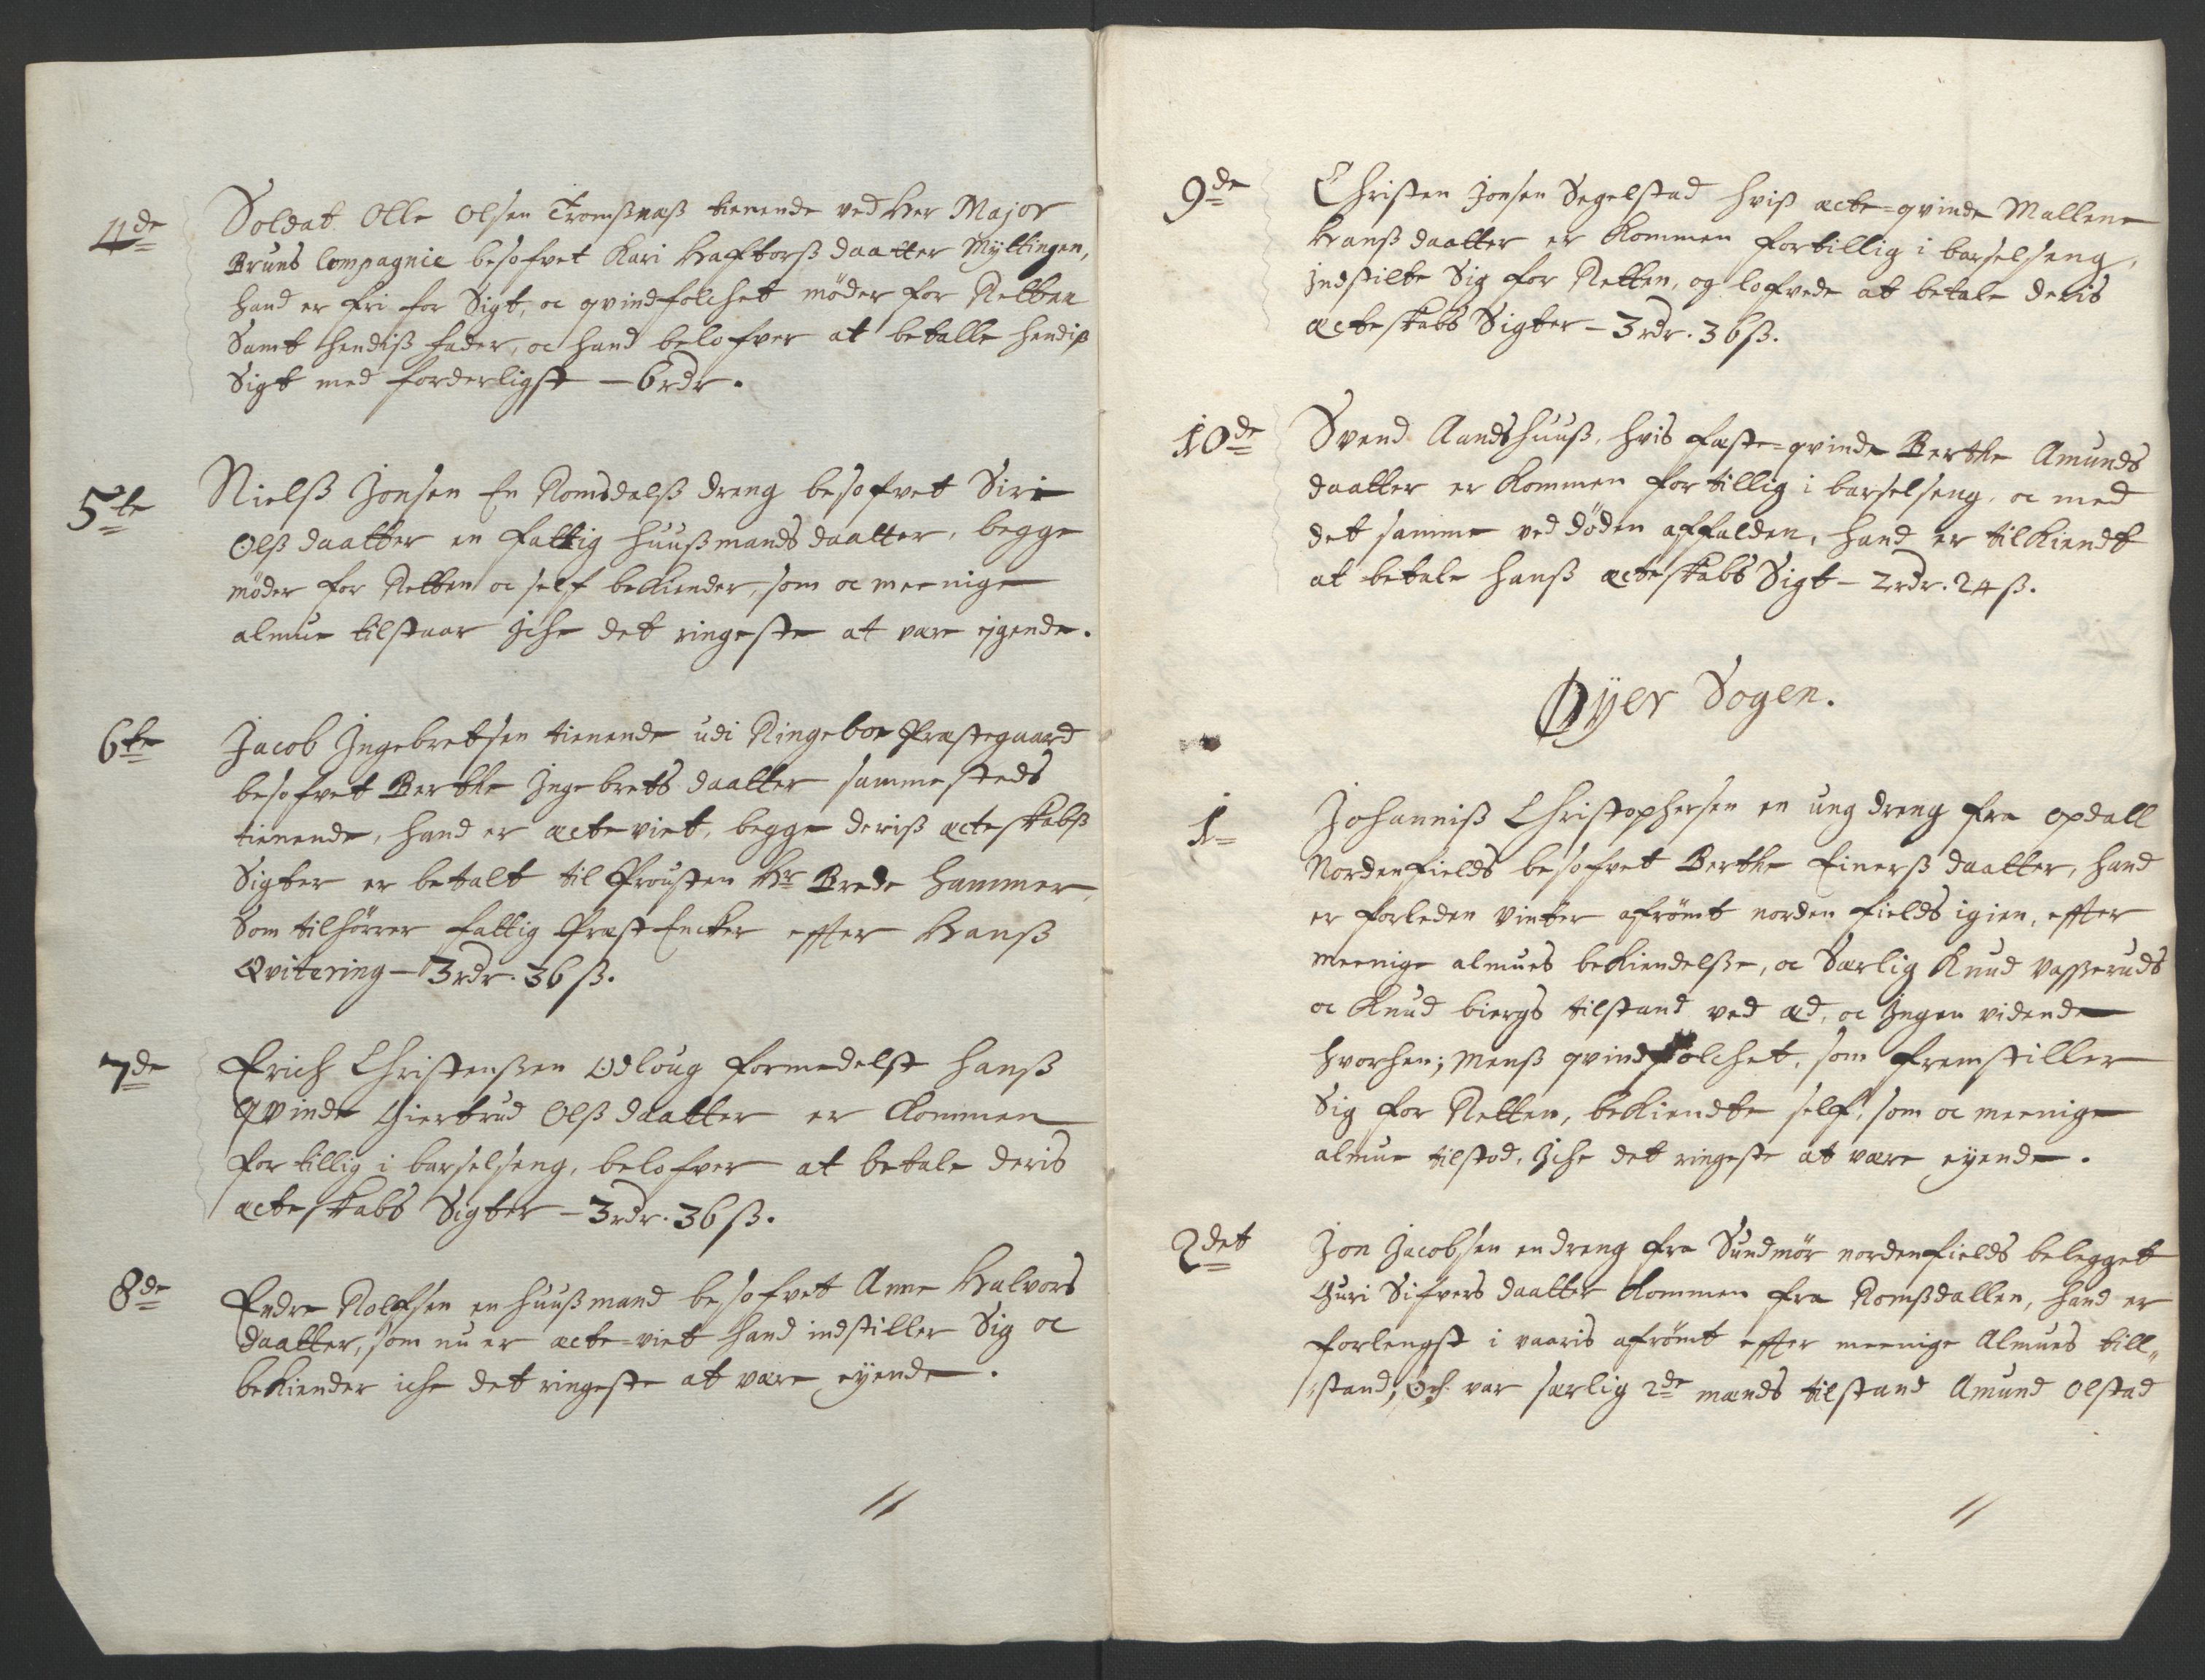 4de
Soldat Olle Olsen Tromßnaß tienende ved Her Major
Bruns Compagnie besofvet Kari Hafftorß daatter Myttingen,
hand er fri for Sigt, oc qvindfolchet møder for Retten
Samt hendiß fader, oc hand belofver at betalle hendiß
Sigt med forderligst – 6 rdr.
5te
Nielß Jonsen En Romsdalß dreng besofvet Siri
Olß daatter en fattig huußmands daatter, begge
møder for Retten oc self bekiender, som oc meenige
almue tilstaar Iche det ringeste at være ejgende.
6te
Jacob Ingebretsen tienende udi Ringeboe Præstegaard
besofvet Berthe Ingebrets daatter sammesteds
tienende, hand er ecteviet, begge deriß ecteskabß
Sigter er betalt til Prousten Hr Brede Hammer,
Som tilhørrer fattig Præst Encker effter Hanß
Qvitering – 3 rdr. 36 ß.
7de
Erich Christenßen Odloug formedelst hanß
qvinde Giertrud Olß daatter er kommen
for tillig i barselseng, belofver at betale deris
ecteskabs Sigter – 3 rdr. 36 ß.
8de
Endre Rolfsen en huußmand besofvet Anne Halvors
daatter, som nu er ecte=viet hand indstiller Sig oc
bekiender iche det ringeste at være eyende.
9de
Christen Jonsen Segelstad hviß ecte=qvinde Mallene
Hanß daatter er kommen fortillig i barselseng,
Indstilte Sig for Retten, og lofvede at betale deris
ecteskabs Sigter – 3 rdr. 36 ß.
10de
Svend Aandshuuß, hvis fæste=qvinde Berthe Amunds
daatter er kommen for tillig i barselseng, oc med
det samme ved døden affalden, hand er tilkiendt
at betale hanß ecteskabs Sigt – 2 rdr. 24 ß.
Øyer Sogen.
1
Johanniß Christophersen en ung dreng fra Opdall
Nordenfields besofvet Berthe Einerß daatter, hand
er forleden vinter afrømt norden fields igien, effter
meenige almues bekiendelße, oc Særlig Knud Vaßeruds
oc Knud biergs tilstand ved æd, oc Ingen vidende
hvorhen; Menß qvindfolchet, som fremstiller
Sig for Retten, bekiendte self, som oc meenige
almue tilstod, Iche det ringeste at være eyende.
2det
Jon Jacobsen en dreng fra Sundmør nordenfields belegget
Guri Sifvers daatter kommen fra Romßdallen, hand er
forlengst i vaaris afrømt effter meenige Almues till„
stand; Och var særlig 2de mænds tilstand Amund Olstad